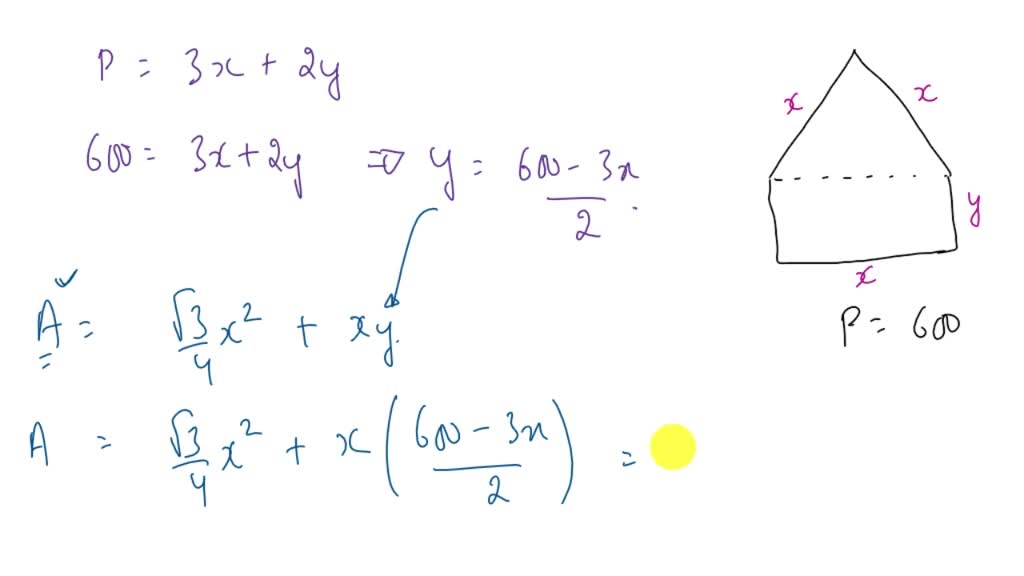 P = 3x + 2y
600 = 3x + 2y ⇒ y = (600 - 3x)/2.
A = √3/4 x² + xy.
A = √3/4 x² + x((600 - 3x)/2) =
x
x
y
x
P = 600